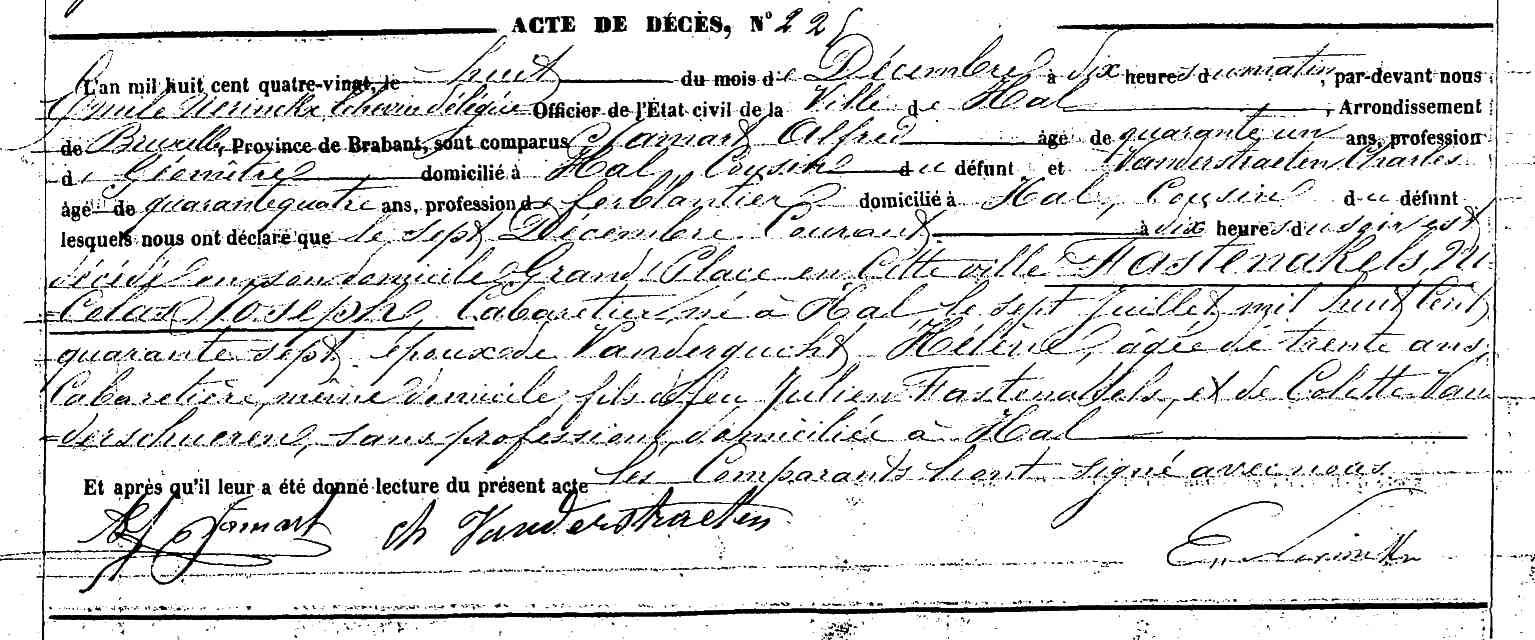 ACTE DE DÉCÈS, N° 225
L'an mil huit cent quatre-vingt, le huit du mois de Décembre à dix heures du matin, par-devant nous
Emile Nerinckx Echevin délégué Officier de l'État civil de la Ville de Hal, Arrondissement
de Bruxelles, Province de Brabant, sont comparus Jamart Alfred âgé de quarante un ans, profession
de Géomètre domicilié à Hal, Cousin du défunt et Vanderstraeten Charles
âgé de quarante quatre ans, profession de ferblantier domicilié à Hal, Cousin du défunt
lesquels nous ont déclaré que le sept Décembre Courant à dix heures du soir est
décédé en son domicile Grand Place en Cette ville Fastenakels, Ni-
Colas Joseph, Cabaretier, né à Hal le sept Juillet mil huit Cent
quarante sept, époux de Vandergucht Hélène, âgée de trente ans,
Cabaretière, même domicile, fils de feu Julien Fastenakels, et de Colette Van-
derschueren, sans profession, domiciliée à Hal
Et après qu'il leur a été donné lecture du présent acte les Comparants l'ont signé avec nous
Alf Jamart Ch Vanderstraeten Em Nerinckx